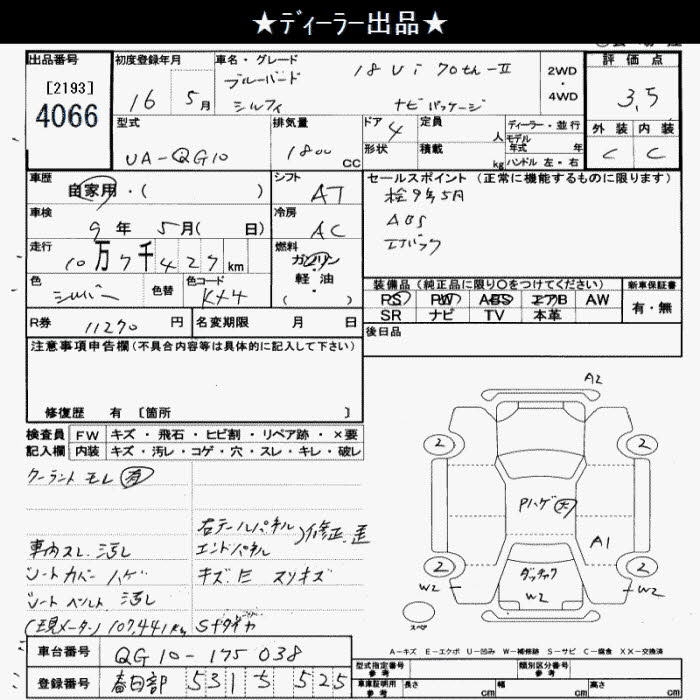 ★ディーラー出品★
出品番号 初度登録年月 車名・グレード 評価点
[2193] ブルーバード 18Vi 70th-II 2WD
4066 16 5月 シルフィ ナビパッケージ 4WD 3,5
型式 排気量 ドア 4 定員 人 ディーラー・並行 外装 内装
モデル年式 年
UA-QG10 1800 CC 形状 積載 kg ハンドル 左・右 C C
車歴 シフト セールスポイント (正常に機能するものに限ります)
自家用・( ) AT 検9年5月
車検 冷房 ABS
9年 5月( 日) AC エアバック
走行 燃料
10万7千427km ガソリン
軽・油
( )
色 色替 色コード 装備品 (純正品に限り○をつけてください) 新車保証書
シルバー KX4 PS PW ABS エアB AW 有・無
SR ナビ TV 本革
R券 11270円 名変期限 月 日 後日品
注意事項申告欄 (不具合内容等は具体的に記入して下さい)
修復歴 有 〔箇所 〕
検査員 FW キズ・飛石・ヒビ割・リペア跡・×要
記入欄 内装 キズ・汚レ・コゲ・穴・スレ・キレ・破レ
クーラント モレ 有
右テールパネル
エンドパネル )修正.歪
車内スレ.汚レ
シートカバー ハゲ キズ.E スリキズ
シートベルト 汚レ
(現メーター) 107,441km Sナダイヤ
A2
2 2
Pハゲ 大
A1
2 2
W2 ダッチャク W2
W2
スペア
A-キズ E-エクボ U-凹み W-補修跡 S-サビ C-腐食 XX-交換済
車台番号 QG10-175038
登録番号 春日部 531 ち 525
型式指定番号 参考 類別区分番号 参考
車庫証明用 参考 長さ cm 幅 cm 高さ cm